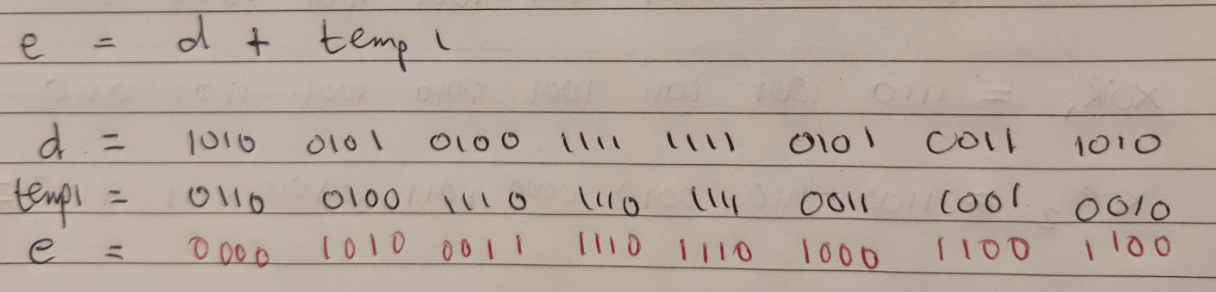 e = d + temp1
d = 1010 0101 0100 1111 1111 0101 0011 1010
temp1 = 0110 0100 1110 1110 1111 0011 1001 0010
e = 0000 1010 0011 1110 1110 1000 1100 1100